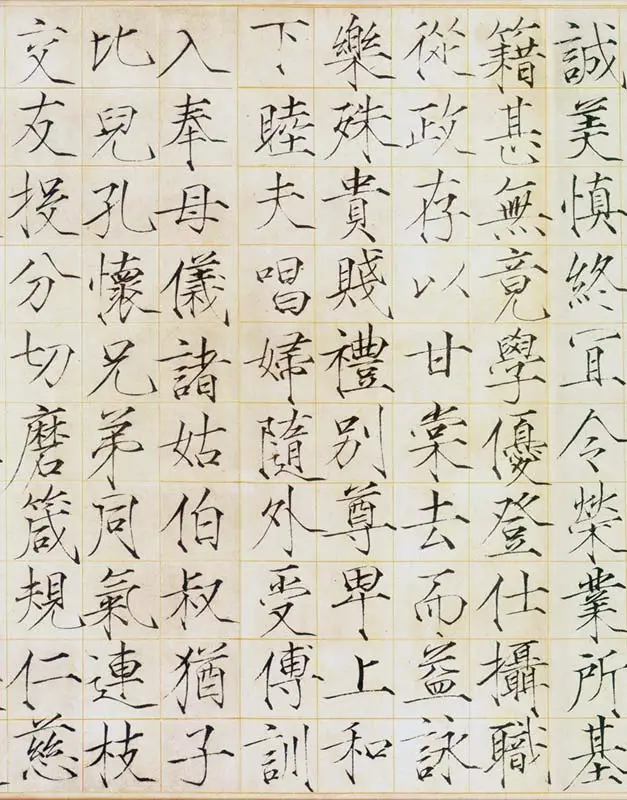 誠美慎終宜令榮業所基
籍甚無竟學優登仕攝職
從政存以甘棠去而益詠
樂殊貴賤禮別尊卑上和
下睦夫唱婦隨外受傅訓
入奉母儀諸姑伯叔猶子
比兒孔懷兄弟同氣連枝
交友投分切磨箴規仁慈